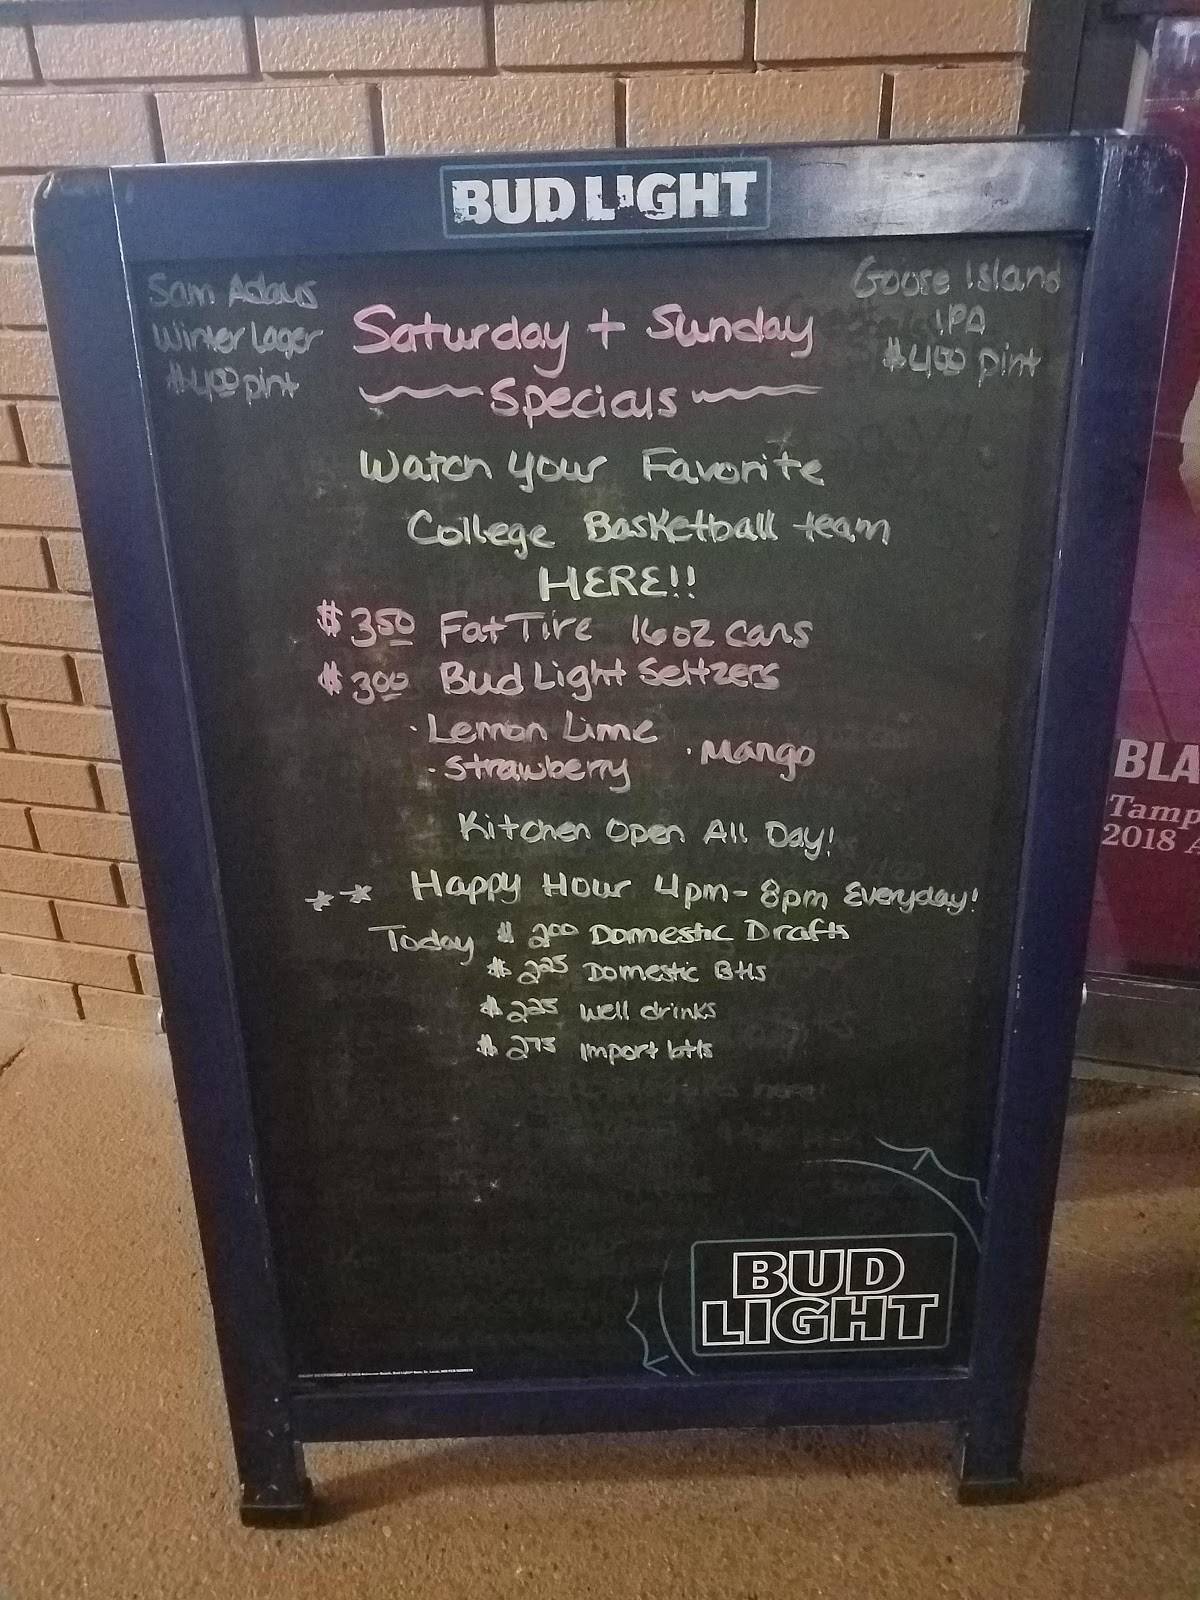 BUD LIGHT
Sam Adams
Winter Lager
$4.00 pint
Goose Island
IPA
$4.00 pint
Saturday + Sunday
Specials
Watch your Favorite
College Basketball team
HERE!!
$3.50 Fat Tire 16oz cans
$3.00 Bud Light Seltzers
· Lemon Lime
· Strawberry · Mango
Kitchen Open All Day!
Happy Hour 4pm-8pm Everyday!
Today $2.00 Domestic Drafts
$2.25 Domestic Btls
$2.25 well drinks
$2.75 import btls
BUD
LIGHT
BLA
Tamp
2018 A